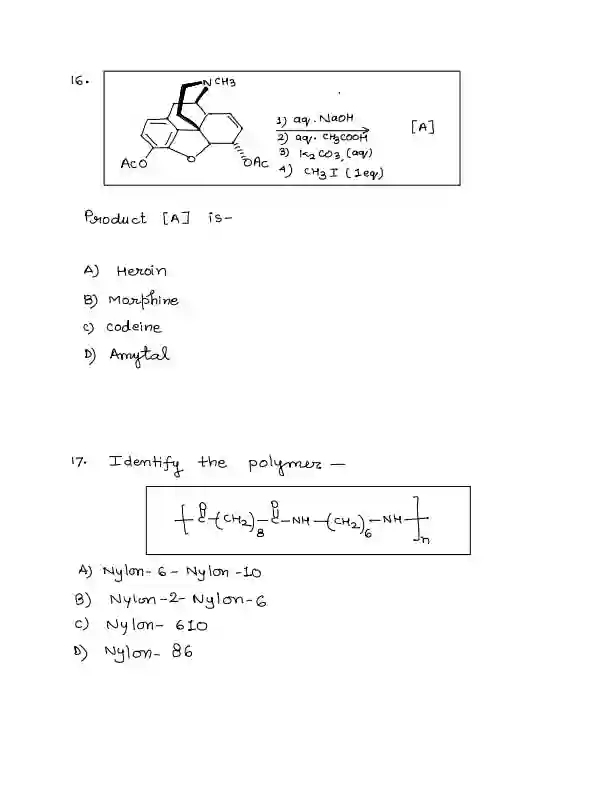 16.
N CH3
AcO
O
OAc
1) aq. NaOH
2) aq. CH3COOH
3) K2CO3, (aq)
4) CH3I (1eq)
[A]
Product [A] is-
A) Heroin
B) Morphine
C) Codeine
D) Amytal
17. Identify the polymer —
[ O O
C-(CH2)8-C-NH-(CH2)6-NH ]n
A) Nylon-6-Nylon-10
B) Nylon-2-Nylon-6
C) Nylon-610
D) Nylon-86